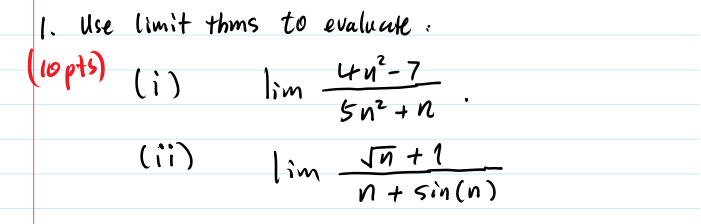 1. Use limit thms to evaluate :
(10 pts)
(i) lim (4n²-7)/(5n²+n) .
(ii) lim (√n + 1)/(n + sin(n))